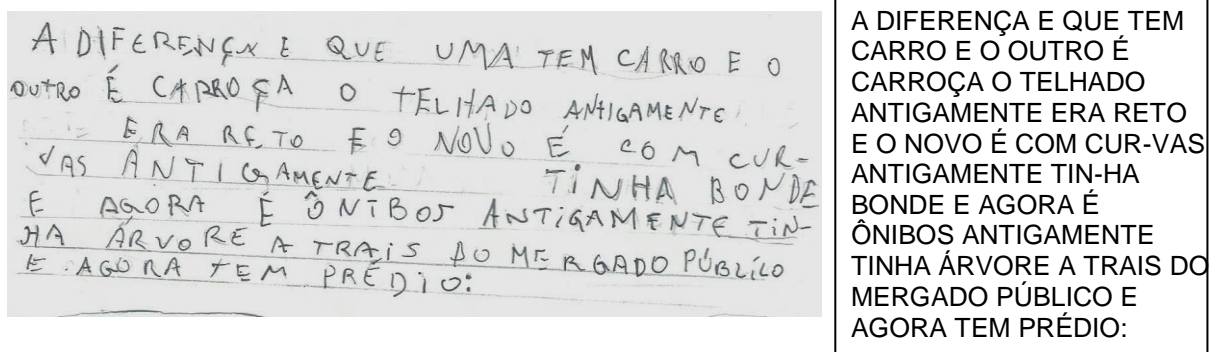 A DIFERENÇA E QUE UMA TEM CARRO E O
OUTRO É CARROÇA O TELHADO ANTIGAMENTE
ERA RETO E O NOVO É COM CUR-
VAS ANTIGAMENTE TINHA BONDE
E AGORA É ÔNIBOS ANTIGAMENTE TIN-
HA ÁRVORE A TRAIS DO MERGADO PÚBLICO
E AGORA TEM PRÉDIO:
A DIFERENÇA E QUE TEM
CARRO E O OUTRO É
CARROÇA O TELHADO
ANTIGAMENTE ERA RETO
E O NOVO É COM CUR-VAS
ANTIGAMENTE TIN-HA
BONDE E AGORA É
ÔNIBOS ANTIGAMENTE
TINHA ÁRVORE A TRAIS DO
MERGADO PÚBLICO E
AGORA TEM PRÉDIO: